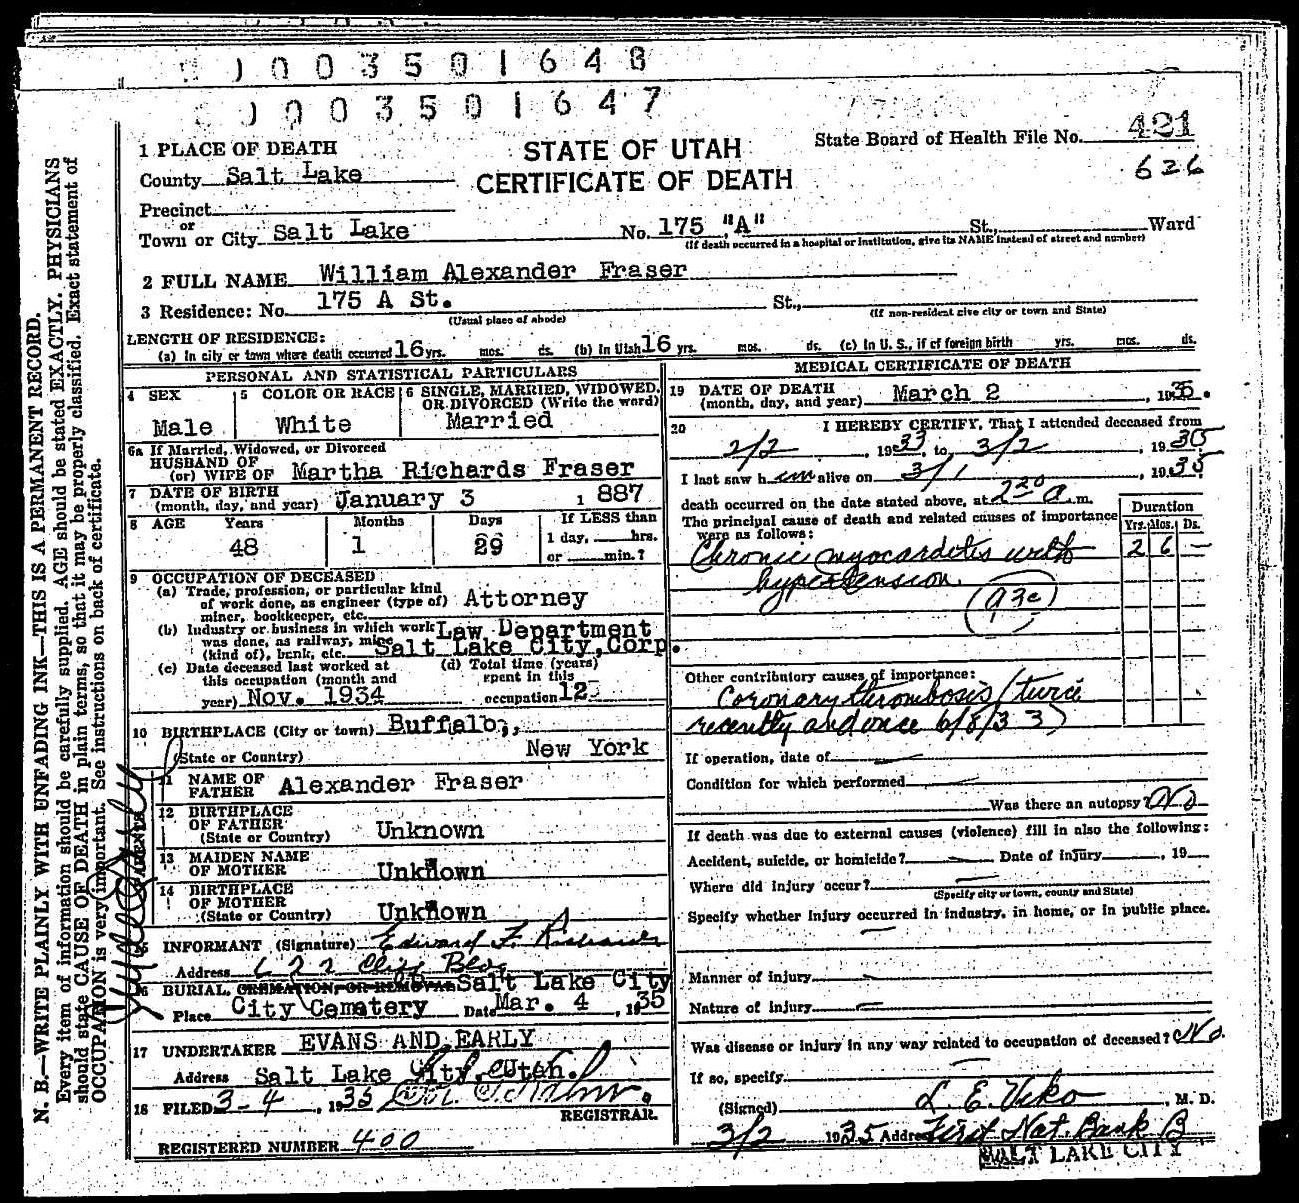 0 0 3 5 0 1 6 4 8
0 0 3 5 0 1 6 4 7
State Board of Health File No. 421
626
STATE OF UTAH
CERTIFICATE OF DEATH
1 PLACE OF DEATH
County Salt Lake
Precinct
or
Town or City Salt Lake No. 175 "A" St., Ward
(If death occurred in a hospital or institution, give its NAME instead of street and number)
2 FULL NAME William Alexander Fraser
3 Residence: No. 175 A St. St.,
(Usual place of abode) (If non-resident give city or town and State)
LENGTH OF RESIDENCE:
(a) In city or town where death occurred 16 yrs. mos. ds. (b) In Utah 16 yrs. mos. ds. (c) In U. S., if of foreign birth yrs. mos. ds.
PERSONAL AND STATISTICAL PARTICULARS
4 SEX
Male
5 COLOR OR RACE
White
6 SINGLE, MARRIED, WIDOWED,
OR DIVORCED (Write the word)
Married
6a If Married, Widowed, or Divorced
HUSBAND OF
(or) WIFE OF Martha Richards Fraser
7 DATE OF BIRTH
(month, day, and year) January 3 1 887
8 AGE Years Months Days If LESS than
48 1 29 1 day, hrs.
or min.?
9 OCCUPATION OF DECEASED
(a) Trade, profession, or particular kind
of work done, as engineer (type of)
miner, bookkeeper, etc. Attorney
(b) Industry or business in which work
was done, as railway, mine
(kind of), bank, etc. Law Department
Salt Lake City, Corp.
(c) Date deceased last worked at
this occupation (month and
year) Nov. 1934
(d) Total time (years)
spent in this
occupation 12
10 BIRTHPLACE (City or town) Buffalo,
(State or Country) New York
PARENTS
11 NAME OF
FATHER Alexander Fraser
12 BIRTHPLACE
OF FATHER
(State or Country) Unknown
13 MAIDEN NAME
OF MOTHER Unknown
14 BIRTHPLACE
OF MOTHER
(State or Country) Unknown
15 INFORMANT (Signature) Edward F. Richards
Address 622 Cliff Bldg
16 BURIAL, CREMATION, OR REMOVAL Salt Lake City
Place City Cemetery Date Mar. 4, 1935
17 UNDERTAKER EVANS AND EARLY
Address Salt Lake City, Utah.
18 FILED 3-4, 1935
REGISTRAR.
REGISTERED NUMBER 400
MEDICAL CERTIFICATE OF DEATH
19 DATE OF DEATH
(month, day, and year) March 2, 1935.
20 I HEREBY CERTIFY, That I attended deceased from
2/2, 1933 to 3/2, 1935
I last saw h im alive on 3/1, 1935
death occurred on the date stated above, at 2 20 a m.
The principal cause of death and related causes of importance
were as follows:
Duration
Yrs. Mos. Ds.
Chronic myocarditis with 2 6 —
hypertension
(93c)
Other contributory causes of importance:
Coronary thrombosis (twice
recently and once 6/8/33)
If operation, date of —
Condition for which performed —
Was there an autopsy? No
If death was due to external causes (violence) fill in also the following:
Accident, suicide, or homicide? — Date of injury, 19
Where did injury occur? —
(Specify city or town, county and State)
Specify whether injury occurred in industry, in home, or in public place.
—
Manner of injury —
Nature of injury —
Was disease or injury in any way related to occupation of deceased? No.
If so, specify —
(Signed) L. E. Viko, M. D.
3/2 1935 Address First Nat. Bank B
SALT LAKE CITY
N. B.—WRITE PLAINLY WITH UNFADING INK—THIS IS A PERMANENT RECORD.
Every item of information should be carefully supplied. AGE should be stated EXACTLY. PHYSICIANS
should state CAUSE OF DEATH in plain terms, so that it may be properly classified. Exact statement of
OCCUPATION is very important. See instructions on back of certificate.